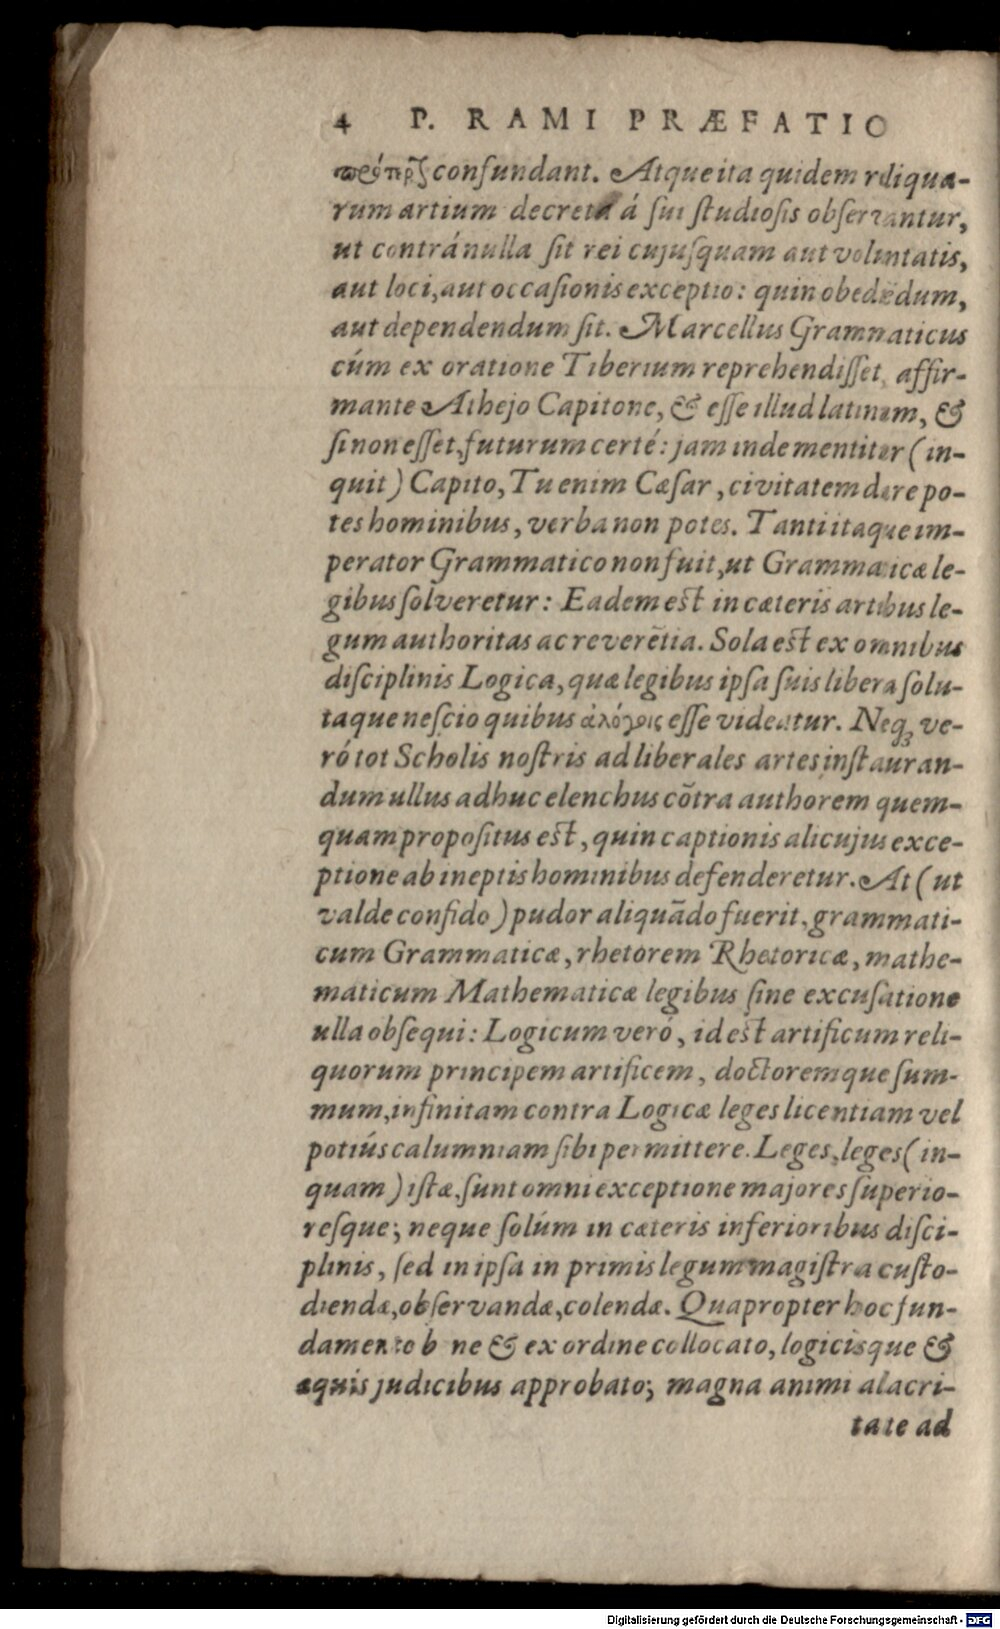 4 P. RAMI PRÆFATIO
confundant. Atque ita quidem reliqua-
rum artium decreta á sui studiosis observantur,
ut contrá nulla sit rei cujusquam aut voluntatis,
aut loci, aut occasionis exceptio: quin obediẽdum,
aut dependendum sit. Marcellus Grammaticus
cúm ex oratione Tiberium reprehendisset, affir-
mante Athejo Capitone, & esse illud latinum, &
si non esset, futurum certé: jam inde mentitur (in-
quit) Capito, Tu enim Cæsar, civitatem dare po-
tes hominibus, verba non potes. Tanti itaque im-
perator Grammatico non fuit, ut Grammaticæ le-
gibus solveretur: Eadem est in cæteris artibus le-
gum authoritas ac reverẽtia. Sola est ex omnibus
disciplinis Logica, quæ legibus ipsa suis libera solu-
taque nescio quibus ἀλόγοις esse videatur. Neq; ve-
ró tot Scholis nostris ad liberales artes instauran-
dum ullus adhuc elenchus cõtra authorem quem-
quam propositus est, quin captionis alicujus exce-
ptione ab ineptis hominibus defenderetur. At (ut
valde confido) pudor aliquãdo fuerit, grammati-
cum Grammaticæ, rhetorem Rhetoricæ, mathe-
maticum Mathematicæ legibus sine excusatione
ulla obsequi: Logicum veró, id est artificum reli-
quorum principem artificem, doctoremque sum-
mum, infinitam contra Logicæ leges licentiam vel
potiús calumniam sibi permittere. Leges, leges (in-
quam) istæ, sunt omni exceptione majores superio-
resque; neque solúm in cæteris inferioribus disci-
plinis, sed in ipsa in primis legum magistra custo-
diendæ, observandæ, colendæ. Quapropter hoc fun-
damento bene & ex ordine collocato, logicisque &
æquis judicibus approbato; magna animi alacri-
tate ad
Digitalisierung gefördert durch die Deutsche Forschungsgemeinschaft - DFG